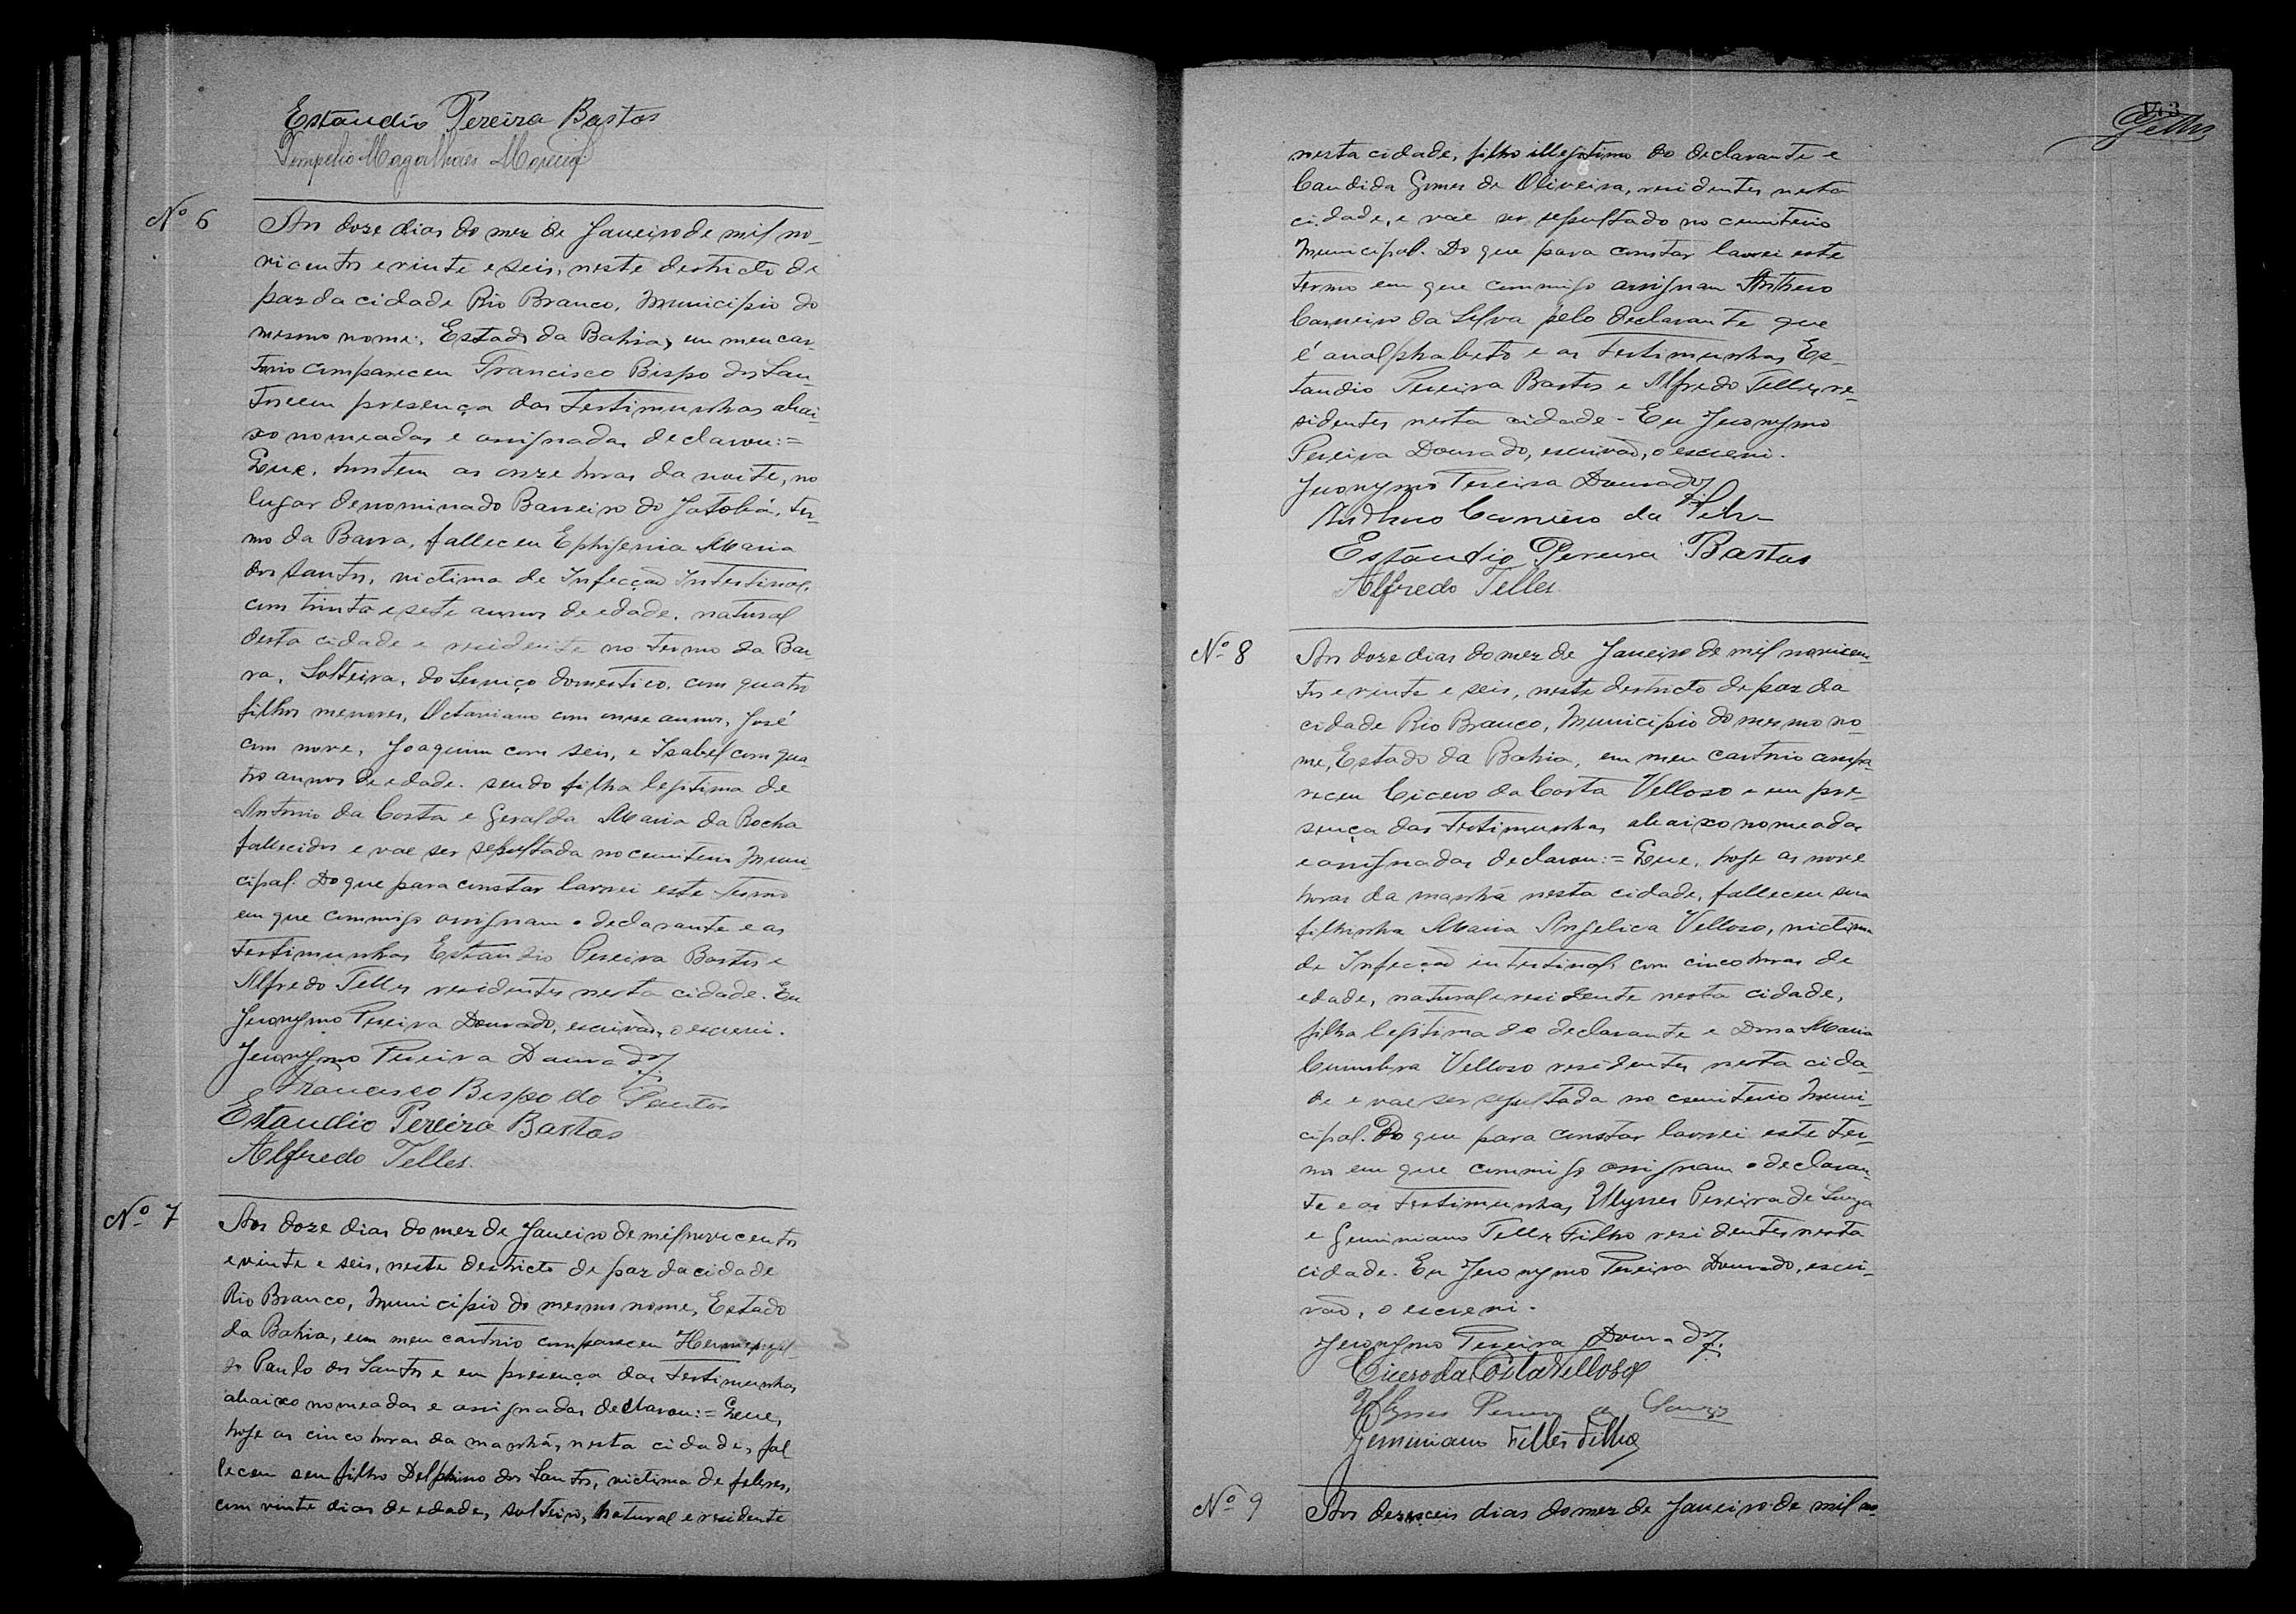 Estáudio Pereira Bastos
Pompilio Magalhães
Nº 6
Aos doze dias do mez de Janeiro de mil no-
vicentos e vinte e seis, neste destricto de
paz da cidade Rio Branco, Municipio do
mesmo nome, Estado da Bahia, em meu car-
torio compareceu Francisco Bispo dos San-
tos e em presença das testimunhas abai-
xo nomeadas e assignadas declarou:=
Que, hontem as onze horas da noite, no
lugar denominado Barreiro do Jatobá, ter-
mo da Barra, falleceu Ephigenia Maria
dos Santos, victima de Infecção Intestinal,
com trinta e sete annos de edade, natural
desta cidade e residente no termo da Bar-
ra, Solteira, do Serviço domestico, com quatro
filhos menores, Octaviano com onze annos, José
com nove, Joaquim com seis, e Isabel com qua-
tro annos de edade. sendo filha legitima de
Antonio da Costa e Geralda Maria da Rocha
fallecidos e vae ser sepultada no cemiterio Muni-
cipal. Do que para constar lavrei este termo
em que commigo assignam o declarante e as
testimunhas Estaudio Pereira Bastos e
Alfredo Telles residentes nesta cidade. Eu
Jeronymo Pereira Dourado, escrivão, o escrevi.
Jeronymo Pereira Dourado
Francisco Bispo do Santos
Estaudio Pereira Bastos
Alfredo Telles.
Nº 7
Aos doze dias do mez de Janeiro de mil novicentos
e vinte e seis, neste destricto de paz da cidade
Rio Branco, Municipio do mesmo nome, Estado
da Bahia, em meu cartorio compareceu
do Paulo dos Santos e em presença das testimunhas
abaixo nomeadas e assignadas declarou:= Que,
hoje as cinco horas da manhã, nesta cidade, fal
leceu seu filho Delphino dos Santos, victima de febres,
com vinte dias de edade, solteiro, natural e residente
143
Telles
nesta cidade, filho illegitimo do declarante e
Candida Gomes de Oliveira, residentes nesta
cidade, e vae ser sepultado no cemiterio
Municipal. Do que para constar lavrei este
termo em que commigo assignam Anthero
Carneiro da Silva pelo declarante que
é analphabeto e as testimunhas Es-
taudio Pereira Bastos e Alfredo Telles re-
sidentes nesta cidade - Eu Jeronymo
Pereira Dourado, escrivão, o escrevi.
Jeronymo Pereira Dourado
Anthero Carneiro da Silva
Estáudio Pereira Bastos
Alfredo Telles.
Nº 8
Aos doze dias do mez de Janeiro de mil novicen-
tos e vinte e seis, neste destricto de paz da
cidade Rio Branco, Municipio do mesmo no-
me, Estado da Bahia, em meu cartorio compa-
receu Cicero da Costa Velloso e em pre-
sença das testimunhas abaixo nomeadas
e assignadas declarou:= Que, hoje as nove
horas da manhã nesta cidade, falleceu sua
filhinha Maria Angelica Velloso, victima
de Infecção intestinal, com cinco horas de
edade, natural e residente nesta cidade,
filha legitima do declarante e Dona Maria
Velloso residentes nesta cida-
de e vae ser sepultada no cemiterio Muni-
cipal. Do que para constar lavrei este ter-
mo em que commigo assignam o declaran-
te e as testimunhas Ulysses Pereira de Souza
e Geminiano Telles Filho residentes nesta
cidade. Eu Jeronymo Pereira Dourado, escri-
vão, o escrevi.
Jeronymo Pereira Dourado
Cicero da Costa Velloso
Ulysses Pereira de Souza
Geminiano Telles Filho
Nº 9
Aos dezeseis dias do mez de Janeiro de mil no-